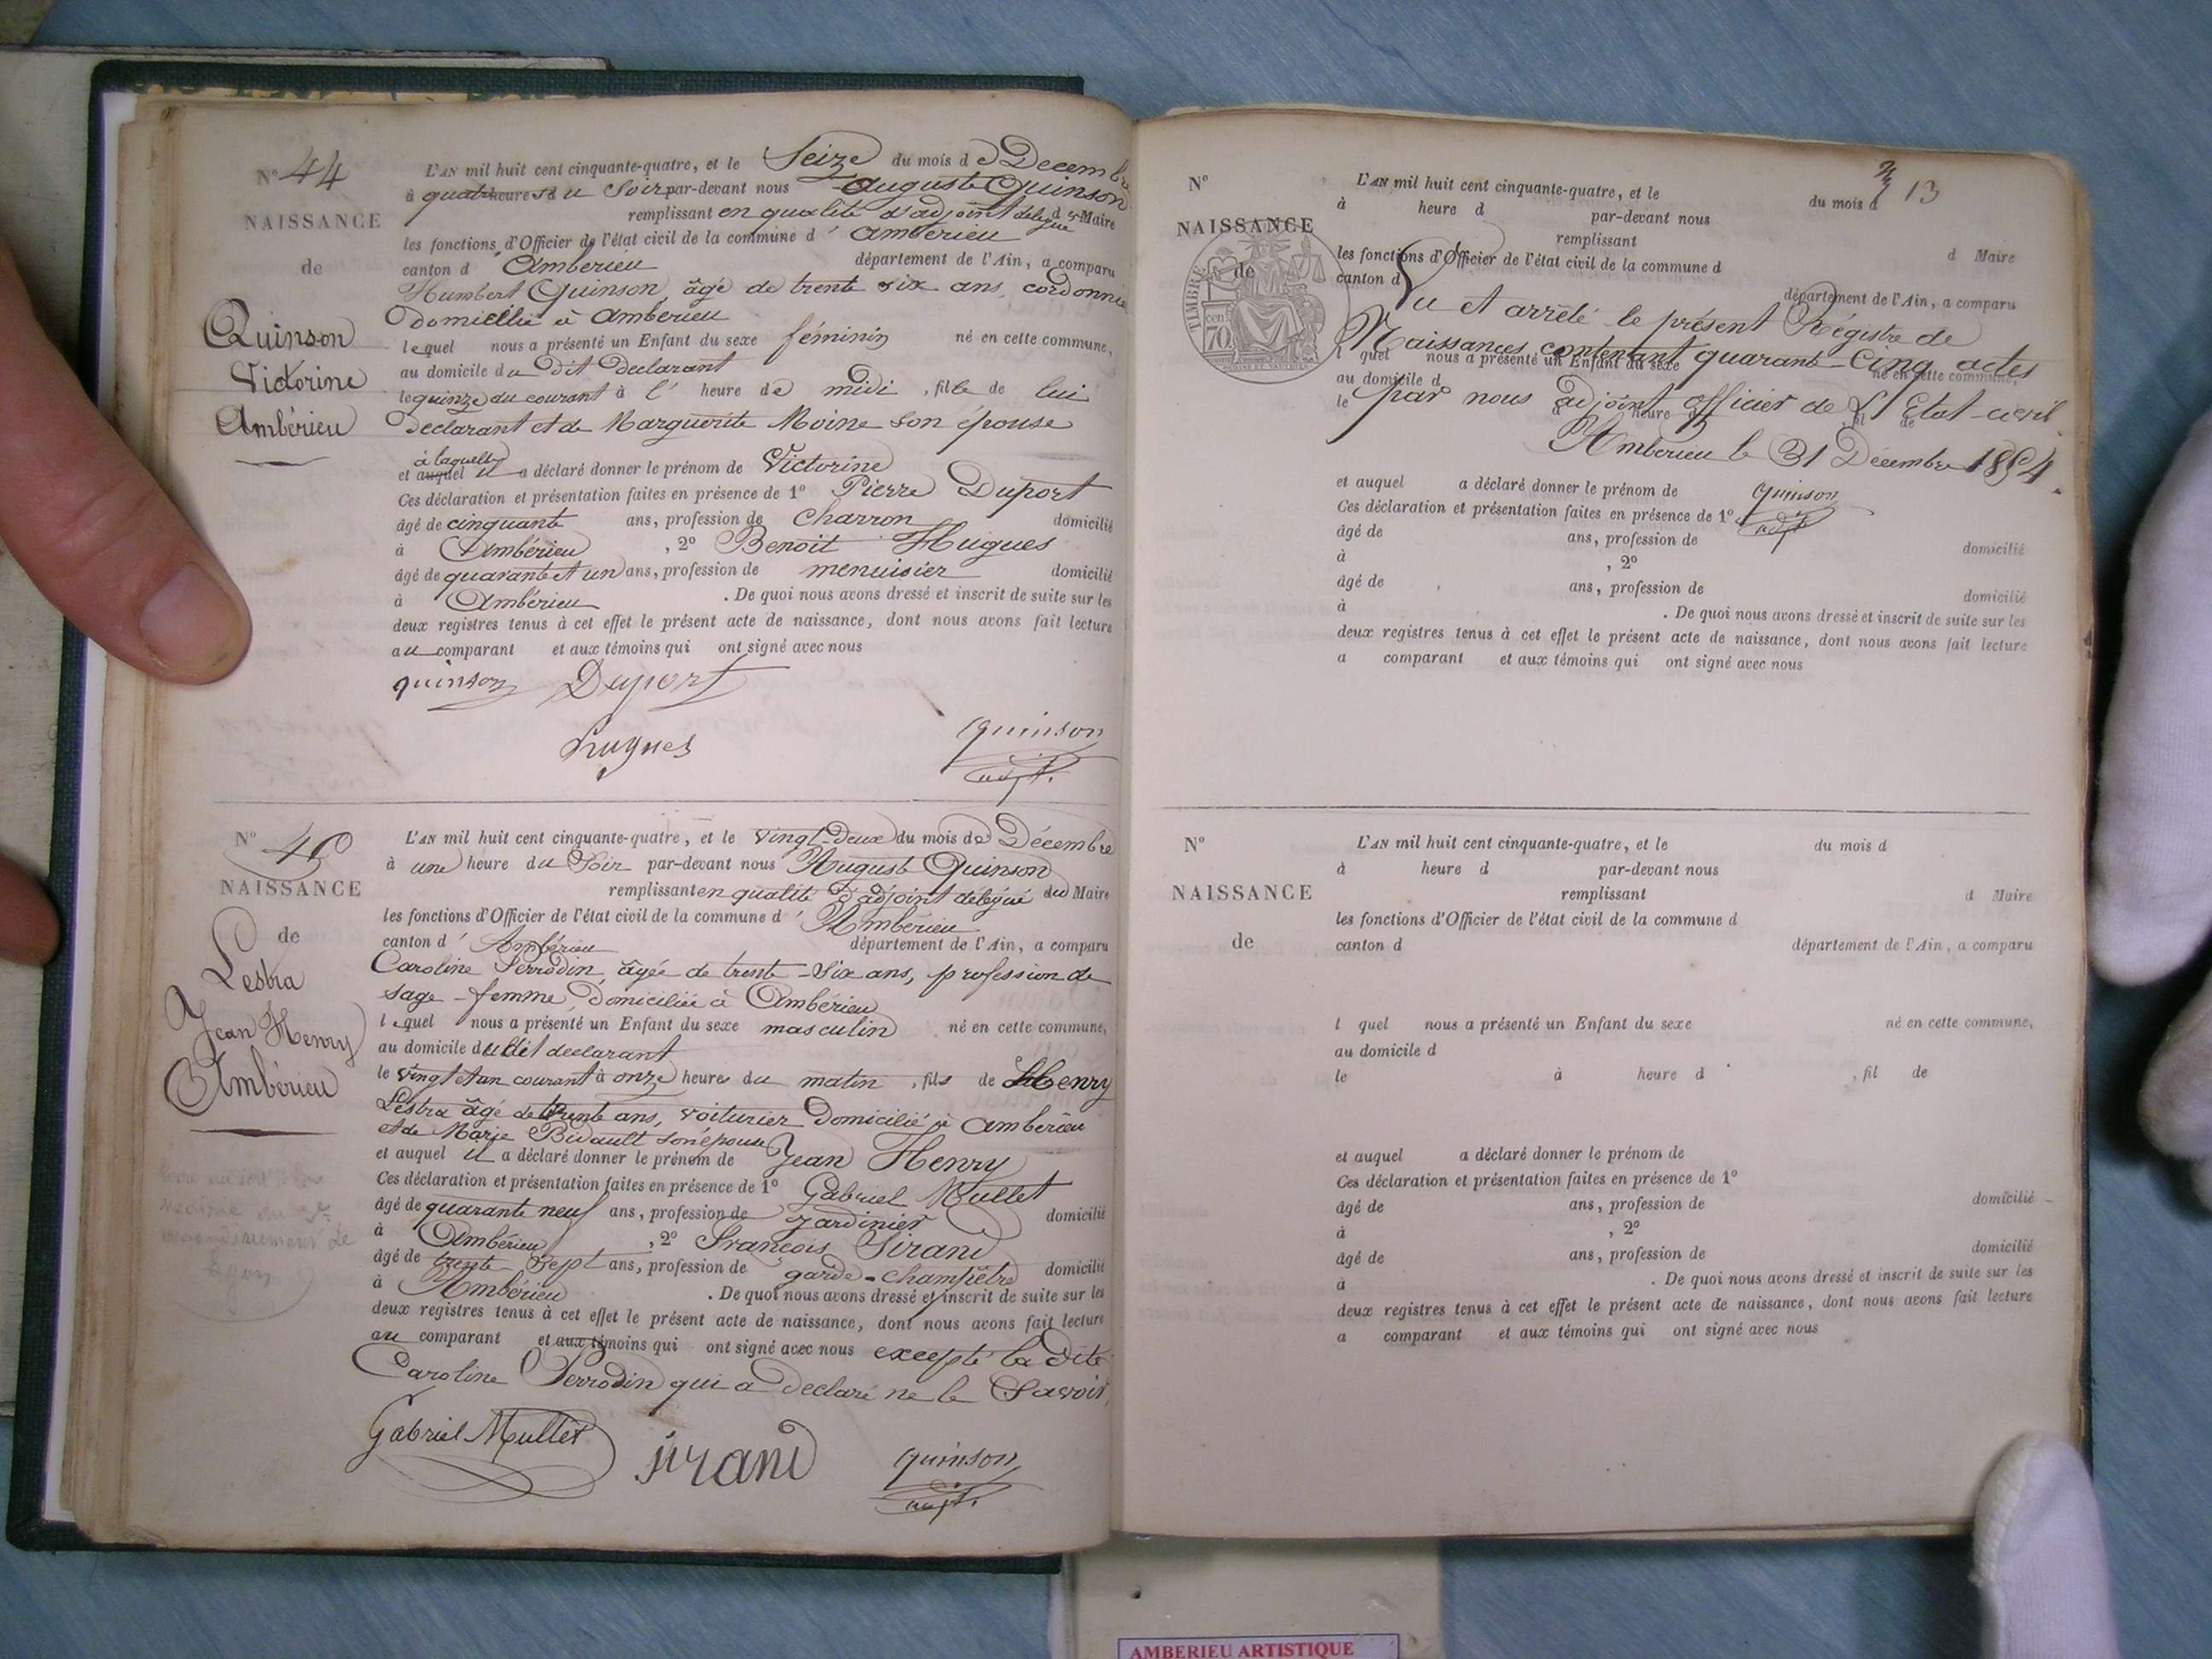 Nº 44
NAISSANCE
de
Quinson
Victorine
Ambérieu
L'AN mil huit cent cinquante-quatre, et le Seize du mois de Decembre
à quatre heures du Soir par-devant nous auguste Quinson
remplissant en qualité d'adjoint délégué du Maire
les fonctions d'Officier de l'état civil de la commune d' amberieu
canton d' Amberieu département de l'Ain, a comparu
Humbert Quinson, âgé de trente six ans, cordonnier
Domicilié à Amberieu
lequel nous a présenté un Enfant du sexe féminin né en cette commune,
au domicile du Dit Declarant
le quinze du courant à l' heure de midi, fille de lui
Declarant et de Marguerite Moine son épouse
à laquelle
et auquel il a déclaré donner le prénom de Victorine
Ces déclaration et présentation faites en présence de 1º Pierre Duport
âgé de cinquante ans, profession de charron domicilié
à Ambérieu, 2º Benoit Hugues
âgé de quarante et un ans, profession de menuisier domicilié
à Ambérieu. De quoi nous avons dressé et inscrit de suite sur les
deux registres tenus à cet effet le présent acte de naissance, dont nous avons fait lecture
au comparant et aux témoins qui ont signé avec nous
quinson Duport
hugues quinson
adjt.
Nº 45
NAISSANCE
de
Lestra
Jean Henry
Ambérieu
L'AN mil huit cent cinquante-quatre, et le vingt-Deux du mois de Décembre
à une heure du Soir par-devant nous Auguste Quinson
remplissant en qualité d'adjoint délégué du Maire
les fonctions d'Officier de l'état civil de la commune d' Ambérieu
canton d' Ambérieu département de l'Ain, a comparu
Caroline Perrodin, âgée de trente-Six ans, profession de
sage-femme Domiciliée à Ambérieu
lequel nous a présenté un Enfant du sexe masculin né en cette commune,
au domicile du dit declarant
le vingt et un courant à onze heures du matin, fils de Henry
Lestra âgé de trente ans, voiturier Domicilié à ambérieu
et de Marie Bidault son épouse
et auquel il a déclaré donner le prénom de Jean Henry
Ces déclaration et présentation faites en présence de 1º Gabriel Mullet
âgé de quarante neuf ans, profession de jardinier domicilié
à Ambérieu, 2º François Sirand
âgé de trente-Sept ans, profession de garde-champêtre domicilié
à Ambérieu. De quoi nous avons dressé et inscrit de suite sur les
deux registres tenus à cet effet le présent acte de naissance, dont nous avons fait lecture
au comparant et aux témoins qui ont signé avec nous excepté la dite
Caroline Perrodin qui a Declaré ne le Savoir
Gabriel Mullet sirand quinson
adjt.
13
Nº
NAISSANCE
de
TIMBRE
70
L'AN mil huit cent cinquante-quatre, et le du mois d
à heure d par-devant nous
remplissant d Maire
les fonctions d'Officier de l'état civil de la commune d
canton d département de l'Ain, a comparu
Vu et arrêté le présent Régistre de
Naissances contenant quarante-Cinq actes
l quel nous a présenté un Enfant du sexe né en cette commune,
au domicile d
par nous adjoint officier de L'Etat-civil
le à heure d, fil de
Amberieu le 31 Décembre 1854.
quinson
adjt
et auquel a déclaré donner le prénom de
Ces déclaration et présentation faites en présence de 1º
âgé de ans, profession de domicilié
à , 2º
âgé de ans, profession de domicilié
à . De quoi nous avons dressé et inscrit de suite sur les
deux registres tenus à cet effet le présent acte de naissance, dont nous avons fait lecture
a comparant et aux témoins qui ont signé avec nous
Nº
NAISSANCE
de
L'AN mil huit cent cinquante-quatre, et le du mois d
à heure d par-devant nous
remplissant d Maire
les fonctions d'Officier de l'état civil de la commune d
canton d département de l'Ain, a comparu
l quel nous a présenté un Enfant du sexe né en cette commune,
au domicile d
le à heure d , fil de
et auquel a déclaré donner le prénom de
Ces déclaration et présentation faites en présence de 1º
âgé de ans, profession de domicilié
à , 2º
âgé de ans, profession de domicilié
à . De quoi nous avons dressé et inscrit de suite sur les
deux registres tenus à cet effet le présent acte de naissance, dont nous avons fait lecture
a comparant et aux témoins qui ont signé avec nous
AMBERIEU ARTISTIQUE